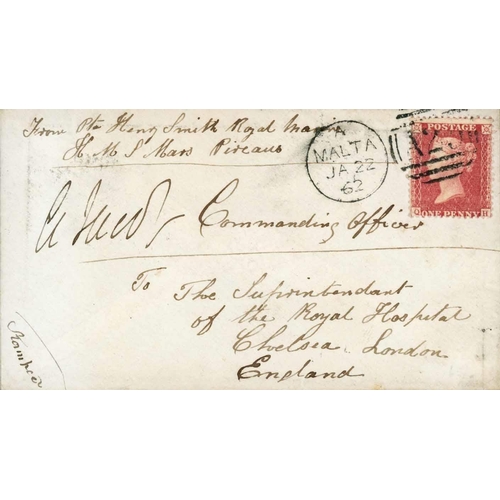 From Pte Henry Smith Royal Marines
H. M. S Mars Pireaus
A
MALTA
JA 22
62
A25
POSTAGE
ONE PENNY
Commanding Officer
To
The Suprintendant
of the Royal Hospital
Chelsea. London
England
Stamped